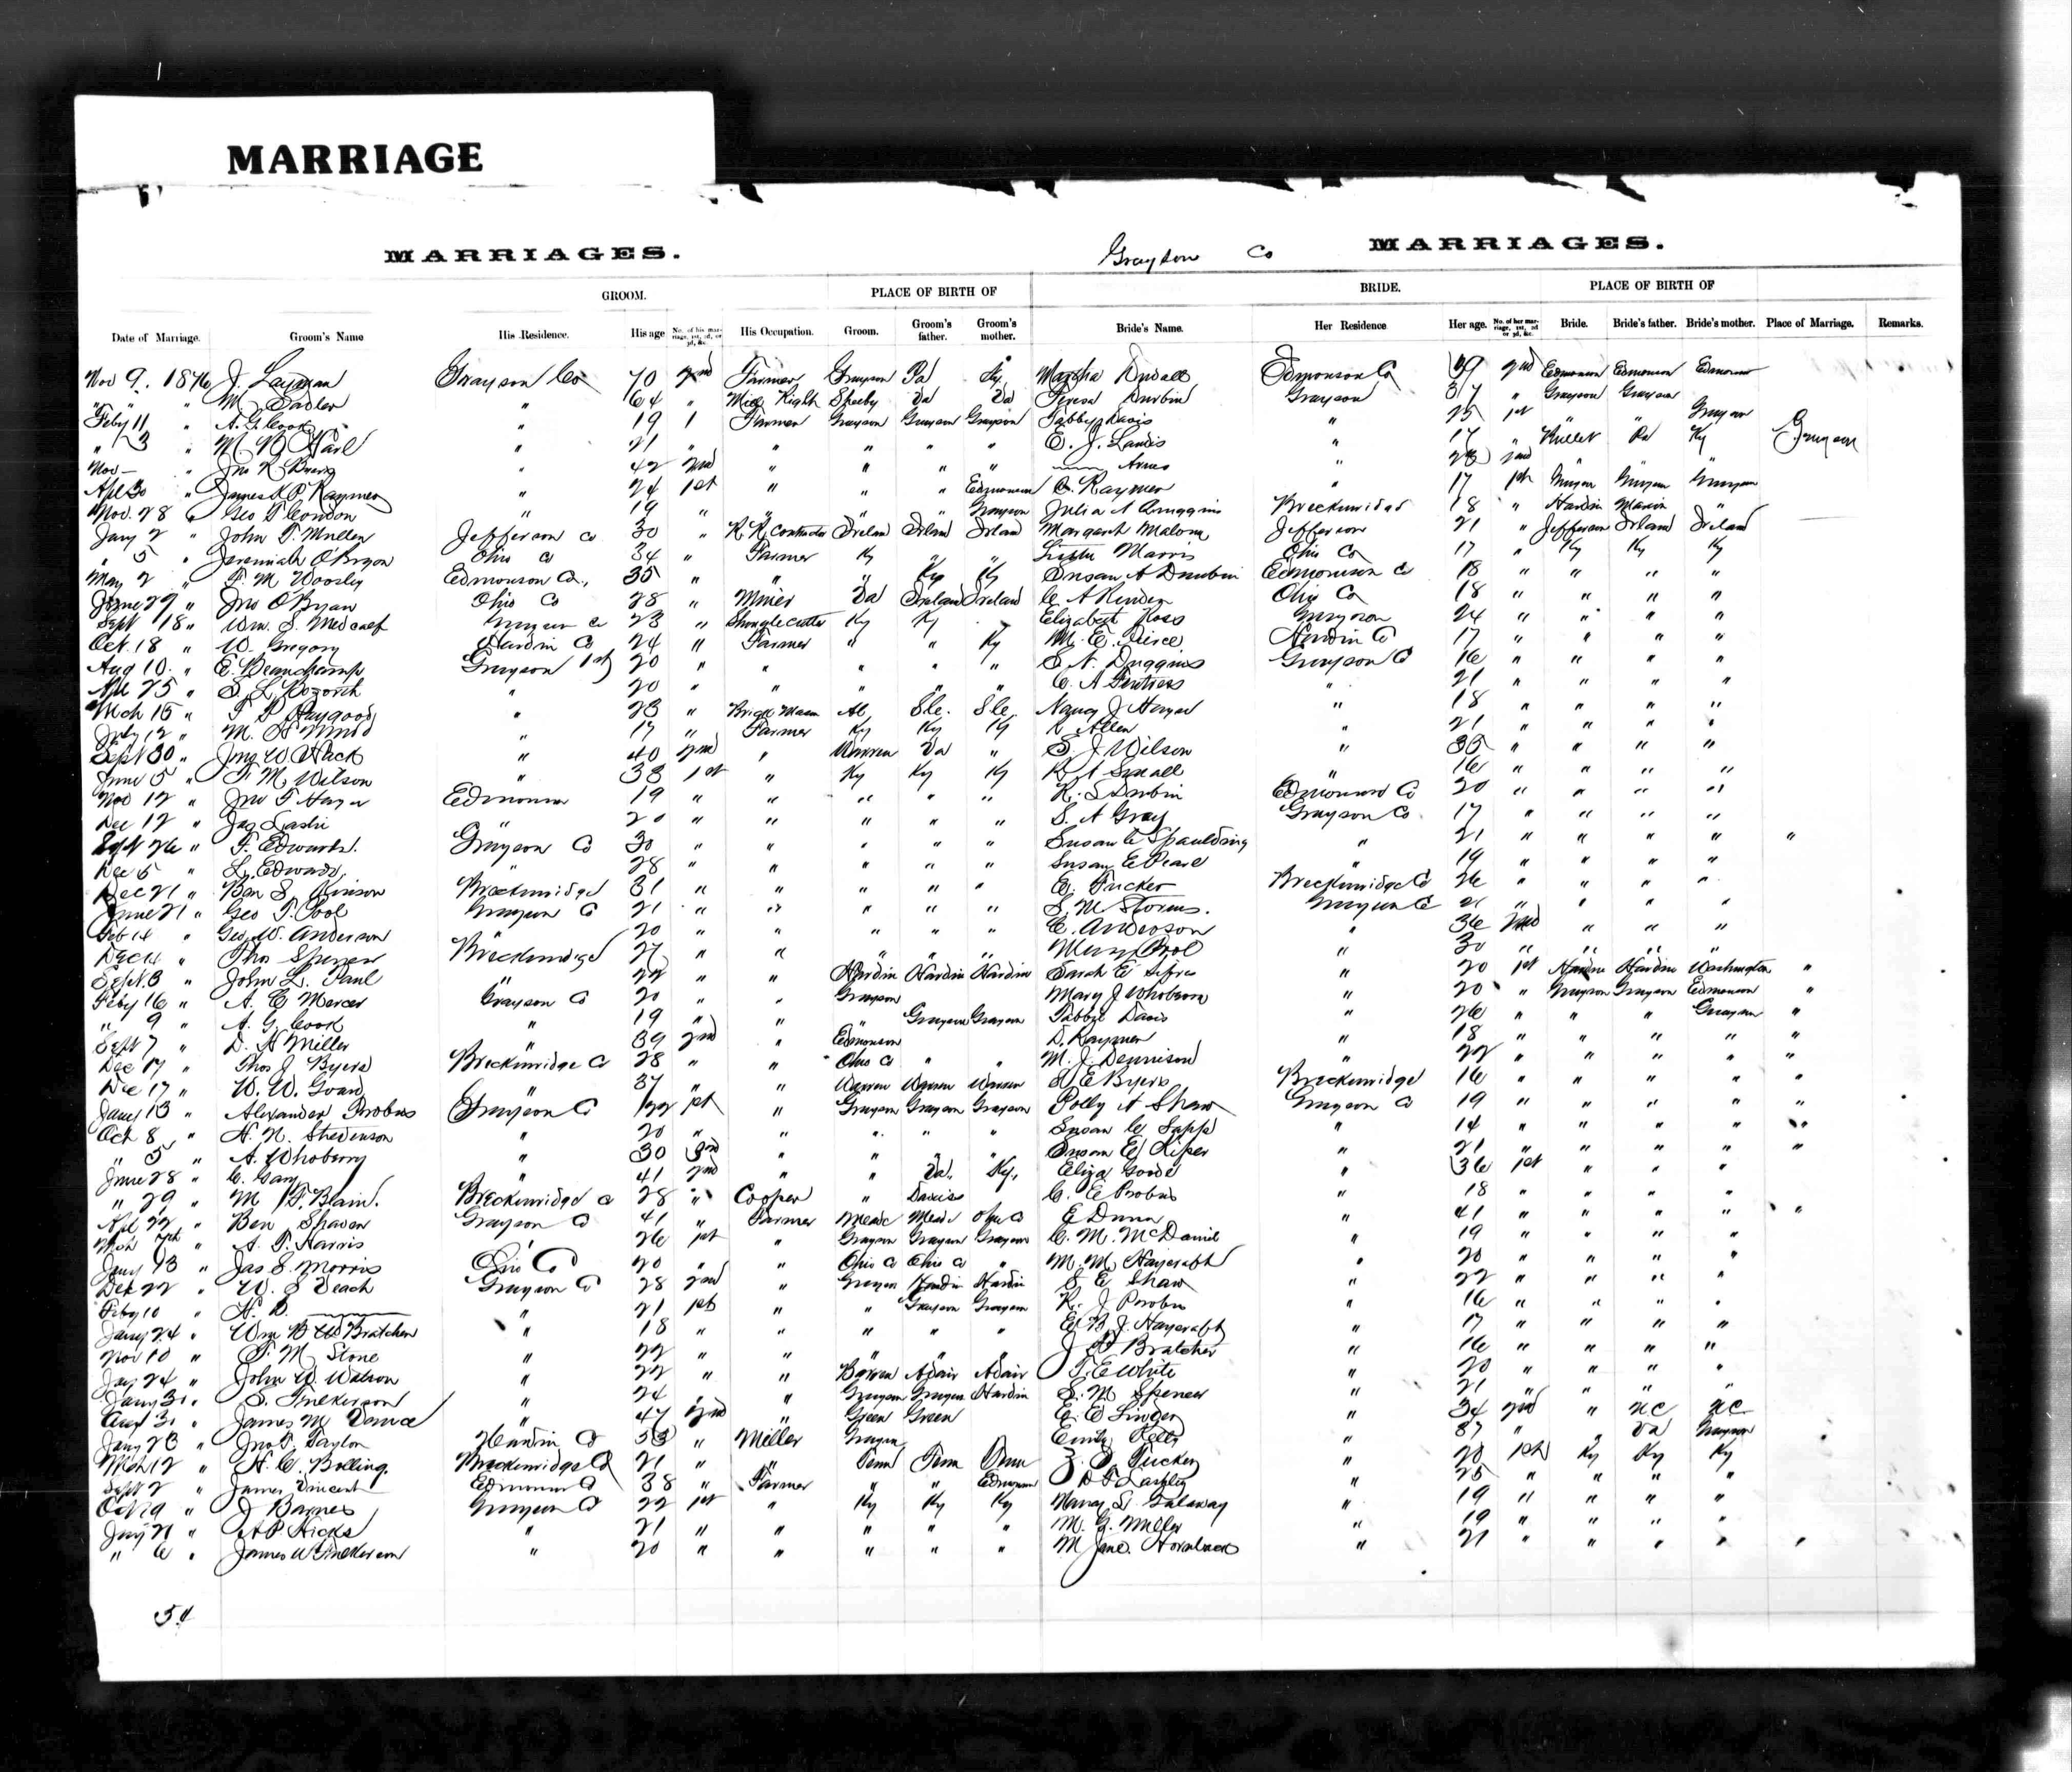 MARRIAGE
MARRIAGES. Grayson Co MARRIAGES.
GROOM. PLACE OF BIRTH OF BRIDE. PLACE OF BIRTH OF
Date of Marriage. Groom's Name His Residence. His age No. of his marriage, 1st, 2d, or 3d, &c. His Occupation. Groom. Groom's father. Groom's mother. Bride's Name. Her Residence Her age. No. of her marriage, 1st, 2d or 3d, &c. Bride. Bride's father. Bride's mother. Place of Marriage. Remarks.
Nov 9. 1876 J. Layman Grayson Co 70 2nd Farmer Grayson Pa Ky. Edmonson Co 2nd Edmonson Edmonson Edmonson
" " " M. Sadler " 64 " Shelby Va Va Teresa Durbin Grayson 37 " Grayson Grayson
Feby 11 " A. G. Cook " 19 1 Farmer Grayson Grayson Grayson Tabby Davis " 25 1st Grayson
" 3 " " 21 " " " " " E. J. Landis " 17 " Pa Ky Grayson
Nov — " " 42 2nd " " " " " 2nd " "
Apl 30 " James K P. Raymer " 24 1st " " " Edmonson C. Raymer " 17 1st Grayson Grayson Grayson
Nov. 28 " Geo T Condon " 19 " " " " Grayson Julia A Breckenridge 18 " Hardin Marion "
Jany 2 " John T. Mullen Jefferson Co 30 " R. R. Contractor Ireland Irland Irland Margaret Malone Jefferson 21 " Jefferson Irland Ireland
" 5 " Jeremiah OBryan Ohio Co 34 " Farmer Ky " " Morris Ohio Co 17 " Ky Ky Ky
May 2 " F. M. Woosley Edmonson Co., 35 " " " Ky Ky Susan A Durbin Edmonson Co 18 " " " "
June 29 " Jno OBryan Ohio Co 28 " Miner Va Ireland Ireland Ohio Co 18 " " " "
Sept 18 " Wm. S. Medcalf Grayson Co 23 " Shingle cutter Ky Ky Elizabeth Ross Grayson 24 " " " "
Oct. 18 " W. Gregory Hardin Co 24 " Farmer " " Ky M. E. Peirce Hardin Co 17 " " " "
Aug 10. " E. Beauchamp Grayson 20 " " " " " S. N. Duggins Grayson Co 16 " " " "
Apl 25 " S. L. Bozorth " 20 " " " " " C. A " 21 " " " "
Mch 15 " Haygood " 23 " Brick Mason Al Nancy J " 18 " " " "
July 12 " " 17 " Farmer Ky Ky Ky Allen " 21 " " " "
Sept 30 " Jno W. " 40 2nd " Warren Va " S. J. Wilson " 35 " " " "
June 5 " F. M. Wilson " 38 1st " Ky Ky Ky Small " 16 " " " "
Nov 12 " Jno T Edmonson 19 " " " " " Durbin Edmonson Co 20 " " " "
Dec 12 " " 20 " " " " " S. A Gray Grayson Co 17 " " " "
Sept 26 " F. Edwards. Grayson Co 30 " " " " " Susan C Spaulding " 21 " " " " "
Dec 5 " L. Edwards " 28 " " " " " Susan E Pearl " 19 " " " "
Dec 21 " Ben S. Breckenridge 31 " " " " " Tucker Breckenridge Co 26 " " " "
June 21 " Geo T. Pool Grayson Co 21 " " " " " S. M Storms. Grayson Co 21 " " " "
Feb 14 " Geo. W. Anderson " 20 " " " " " E. Anderson " 36 2nd " " "
Dec 4 " Thos Spencer Breckenridge 27 " " " " " Mary Pool " 30 " " " "
Sept. 3 " John L. Paul " 22 " " Hardin Hardin Hardin Sarah E " 20 1st Hardin Hardin Washington "
Feby 16 " A. C Mercer Grayson Co 20 " " Grayson Mary J Whobrey " 20 " Grayson Grayson Edmonson "
" 9 " A. G. Cook " 19 " " " Grayson Grayson Davis " 26 " " " Grayson "
Sept 7 " D. A Miller " 39 2nd " Edmonson D. Raymer " 18 " " " " "
Dec 17 " Thos J Byers Breckenridge Co 28 " " Ohio Co " " M. J. Dennison " 22 " " " " "
Dec 17 " W. W. " 37 " " Warren Warren Warren E Byers Breckenridge 16 " " " " "
Jany 13 " Alexander Probus Grayson Co 22 1st " Grayson Grayson Grayson Polly A Shaw Grayson Co 19 " " " " "
Oct 8 " H. N. Stevenson " 20 " " " " " Susan C Sapp " 14 " " " " "
" 5 " A. Whoberry " 30 3rd " " Susan E. Kiper " 21 " " " " "
June 28 " C. Gary " 41 2nd " " Va. Ky. Eliza Goode " 36 1st " " "
" 29 " M. F. Blain. Breckenridge Co 28 " Cooper " Daviess C. E Probus " 18 " " " "
Apl 22 " Ben Shaven Grayson Co 41 " Farmer Meade Meade Ohio Co E Dunn " 41 " " " " "
Mch 7th " A. T. Harris " 26 1st " Grayson Grayson Grayson C. M. McDaniel " 19 " " " "
Jany 13 " Jas S. Morris Ohio Co 20 " " Ohio Co Ohio Co " M. M. Haycraft " 20 " " " "
Dec 22 " W. S Veach Grayson Co 28 2nd " Grayson Hardin Hardin S. E Shaw " 22 " " " "
Feby 10 " H. B. " 21 1st " " Grayson Grayson K. J Probus " 16 " " " "
Jany 24 " Wm B W Bratcher " 18 " " " " " E. B. J. Haycraft " 17 " " " "
Nov 10 " F. M, Stone " 22 " " " " " Bratcher " 16 " " " "
Jay 24 " John W. Watson " 22 " " Barren Adair Adair T. E White " 20 " " " "
Jany 31 " S. Fulkerson " 24 " " Grayson Grayson Hardin S. M Spencer " 21 " " " "
Aug 31 " James M " 47 2nd " Green Green E. E " 34 2nd " NC NC
Jany 23 " Taylor Hardin Co 53 " Miller Grayson Emily Kelly " 37 " " Va Grayson
Mch 12 " H. C. Bolling. Breckenridge Co 21 " " Tenn Tenn Tenn Tucker " 20 1st Ky Ky Ky
Sept 2 " James Vincent Edmonson Co 38 " Farmer " " Edmonson Lashley " 25 " " " "
Oct 19 " J Barnes Grayson Co 22 1st " Ky Ky Ky Nancy S. Galaway " 19 " " " "
Jany 21 " A P. Hicks " 21 " " " " " M. G. Miller " 19 " " " "
" 6 " James W Fulkerson " 20 " " " " " M Jane. Hornback " 21 " " " " "
54